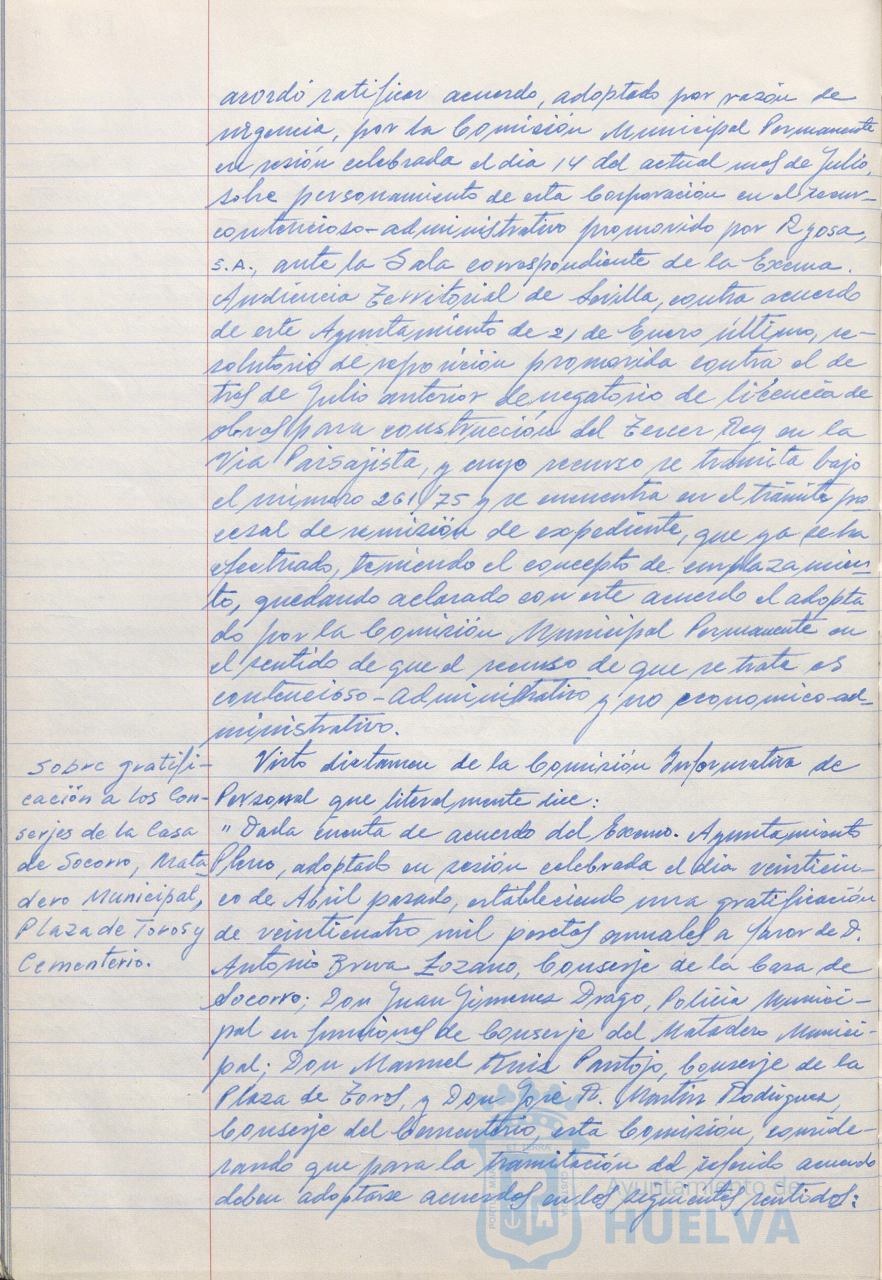 acordó ratificar acuerdo, adoptado por razón de
urgencia, por la Comisión Municipal Permanente
en sesión celebrada el día 14 del actual mes de Julio,
sobre personamiento de esta Corporación en el recur-
contencioso-administrativo promovido por Rgosa,
S.A., ante la Sala correspondiente de la Excma.
Audiencia Territorial de Sevilla, contra acuerdo
de este Ayuntamiento de 21 de Enero último, re-
solutorio de reposición promovida contra el de
tres de Julio anterior denegatorio de licencia de
obras para construcción del Tercer Reg en la
Via Paisajista, y cuyo recurso se tramita bajo
el número 261/75 y se encuentra en el trámite pro
cesal de remisión de expediente, que ya se ha
efectuado, teniendo el concepto de emplazamien
to, quedando aclarado con este acuerdo el adopta
do por la Comisión Municipal Permanente en
el sentido de que el recurso de que se trata es
contencioso-administrativo y no economico-ad-
ministrativo.
Sobre gratifi-
cación a los Con-
serjes de la Casa
de Socorro, Mata
dero Municipal,
Plaza de Toros y
Cementerio.
Visto dictamen de la Comisión Informativa de
Personal que literalmente dice:
" Dada cuenta de acuerdo del Excmo. Ayuntamiento
Pleno, adoptado en sesión celebrada el día veinticin-
co de Abril pasado, estableciendo una gratificación
de veinticuatro mil pesetas anuales a favor de D.
Antonio Breva Lozano, Conserje de la Casa de
Socorro; Don Juan Jimenez Drago, Policia Munici-
pal en funciones de Conserje del Matadero Munici-
pal; Don Manuel Ruiz Pantojo, Conserje de la
Plaza de Toros, y Don José A. Martín Rodríguez,
Conserje del Cementerio, esta Comisión, conside-
rando que para la tramitación del referido acuerdo
deben adoptarse acuerdos en los siguientes sentidos:
Ayuntamiento de
HUELVA